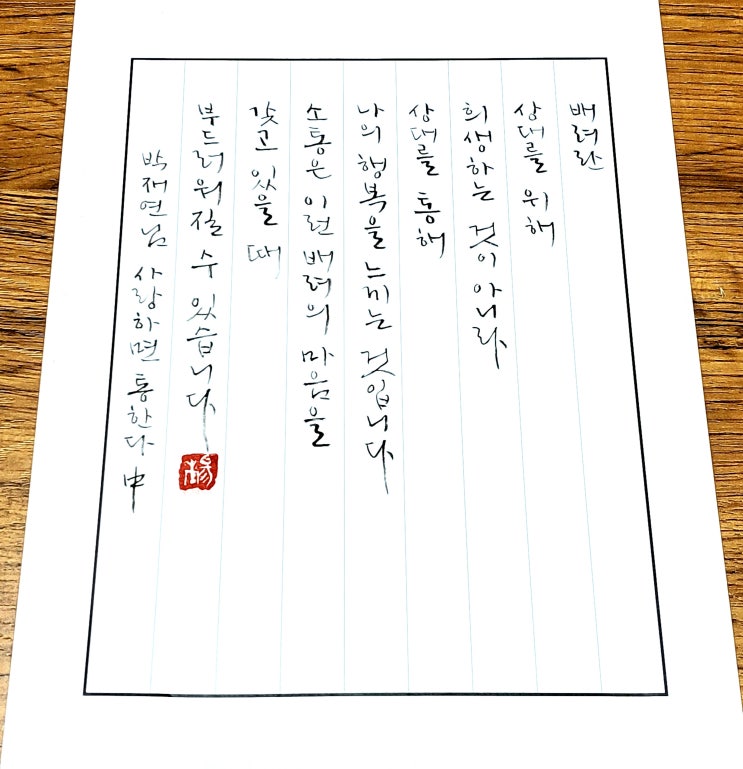 배려란
상대를 위해
희생하는 것이 아니라
상대를 통해
나의 행복을 느끼는 것입니다
소통은 이런 배려의 마음을
갖고 있을 때
부드러워질 수 있습니다
박재연님 사랑하면 통한다 中